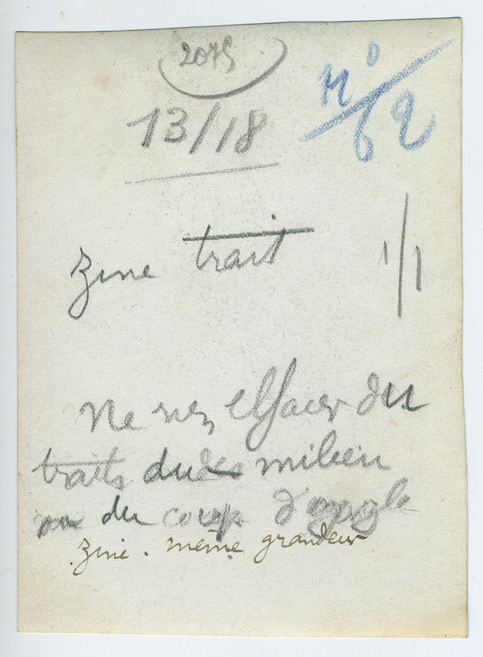 2075
13/18
N° 62
zinc trait
1/1
Ne rien effacer du
traits du des milieu
ou du coup d'ongle
zinc. même grandeur